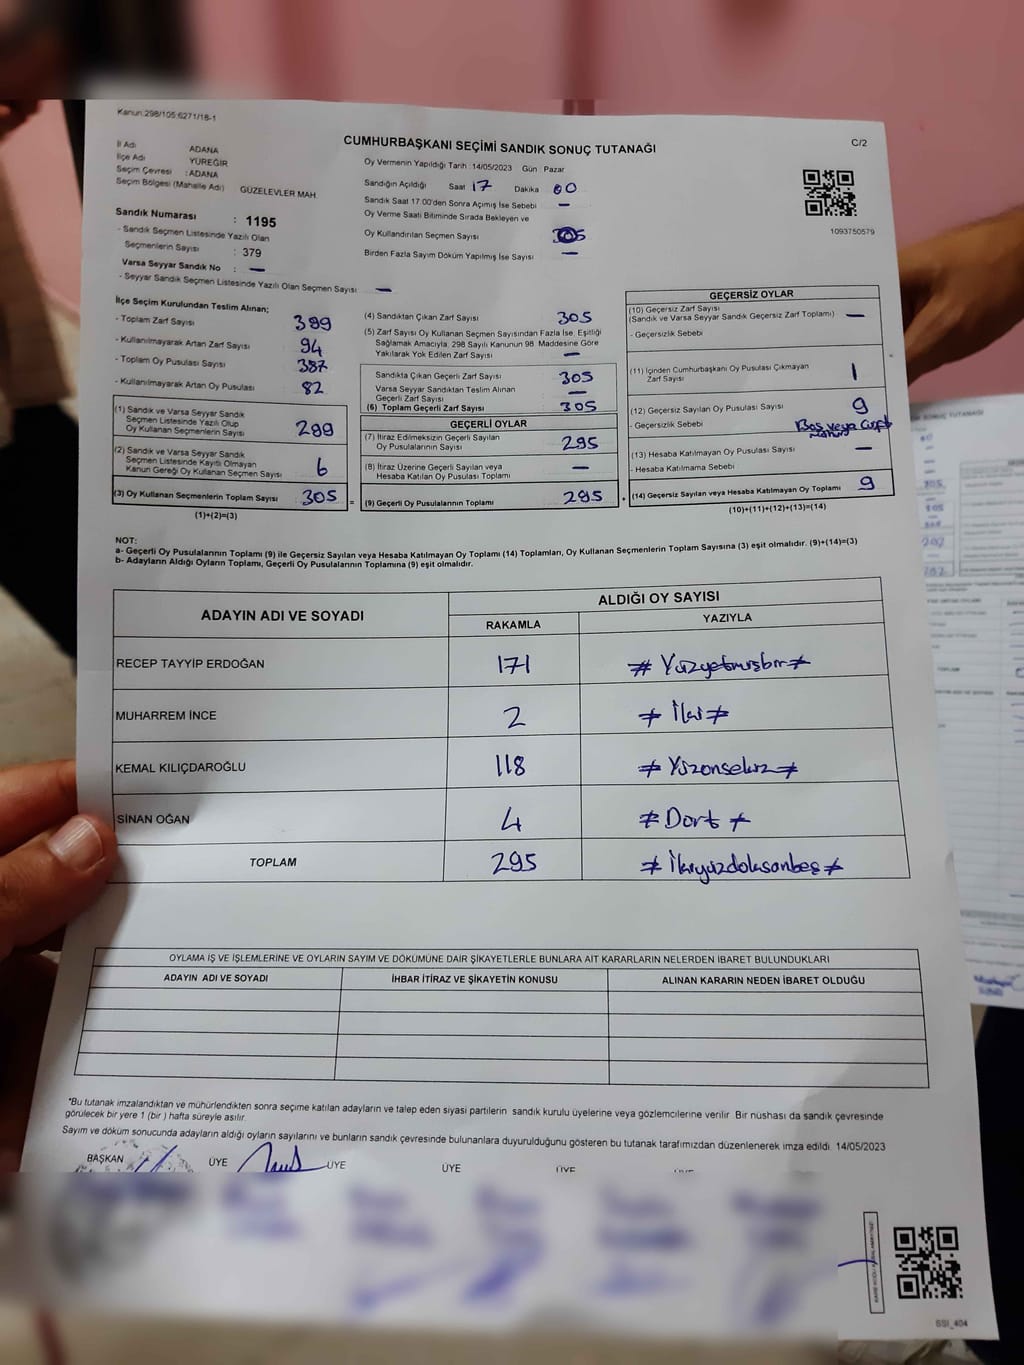 Kanun:298/105;6271/18-1
C/2
CUMHURBAŞKANI SEÇİMİ SANDIK SONUÇ TUTANAĞI
İl Adı ADANA
İlçe Adı YÜREĞİR
Seçim Çevresi : ADANA
Seçim Bölgesi (Mahalle Adı) GÜZELEVLER MAH.
Sandık Numarası : 1195
- Sandık Seçmen Listesinde Yazılı Olan
Seçmenlerin Sayısı : 379
Varsa Seyyar Sandık No : —
- Seyyar Sandık Seçmen Listesinde Yazılı Olan Seçmen Sayısı : —
Oy Vermenin Yapıldığı Tarih :14/05/2023 Gün : Pazar
Sandığın Açıldığı Saat 17 Dakika 00
Sandık Saat 17.00'den Sonra Açımış İse Sebebi —
Oy Verme Saati Bitiminde Sırada Bekleyen ve
Oy Kullandırılan Seçmen Sayısı
Birden Fazla Sayım Döküm Yapılmış İse Sayısı —
1093750579
İlçe Seçim Kurulundan Teslim Alınan;
- Toplam Zarf Sayısı 399
- Kullanılmayarak Artan Zarf Sayısı 94
- Toplam Oy Pusulası Sayısı 387
- Kullanılmayarak Artan Oy Pusulası 82
(1) Sandık ve Varsa Seyyar Sandık
Seçmen Listesinde Yazılı Olup
Oy Kullanan Seçmenlerin Sayısı 299
(2) Sandık ve Varsa Seyyar Sandık
Seçmen Listesinde Kayıtlı Olmayan
Kanun Gereği Oy Kullanan Seçmen Sayısı 6
(3) Oy Kullanan Seçmenlerin Toplam Sayısı 305 =
(1)+(2)=(3)
(4) Sandıktan Çıkan Zarf Sayısı 305
(5) Zarf Sayısı Oy Kullanan Seçmen Sayısından Fazla İse, Eşitliği
Sağlamak Amacıyla, 298 Sayılı Kanunun 98. Maddesine Göre
Yakılarak Yok Edilen Zarf Sayısı —
Sandıkta Çıkan Geçerli Zarf Sayısı 305
Varsa Seyyar Sandıktan Teslim Alınan
Geçerli Zarf Sayısı —
(6) Toplam Geçerli Zarf Sayısı 305
GEÇERLİ OYLAR
(7) İtiraz Edilmeksizin Geçerli Sayılan
Oy Pusulası Sayısı 295
(8) İtiraz Üzerine Geçerli Sayılan veya
Hesaba Katılan Oy Pusulası Toplamı —
(9) Geçerli Oy Pusulalarının Toplamı 295 +
GEÇERSİZ OYLAR
(10) Geçersiz Zarf Sayısı
(Sandık ve Varsa Seyyar Sandık Geçersiz Zarf Toplamı) —
- Geçersizlik Sebebi
(11) İçinden Cumhurbaşkanı Oy Pusulası Çıkmayan
Zarf Sayısı 1
(12) Geçersiz Sayılan Oy Pusulası Sayısı 9
- Geçersizlik Sebebi Boş veya Çift
(13) Hesaba Katılmayan Oy Pusulası Sayısı —
- Hesaba Katılmama Sebebi
(14) Geçersiz Sayılan veya Hesaba Katılmayan Oy Toplamı 9
(10)+(11)+(12)+(13)=(14)
NOT:
a- Geçerli Oy Pusulalarının Toplamı (9) ile Geçersiz Sayılan veya Hesaba Katılmayan Oy Toplamı (14) Toplamları, Oy Kullanan Seçmenlerin Toplam Sayısına (3) eşit olmalıdır. (9)+(14)=(3)
b- Adayların Aldığı Oyların Toplamı, Geçerli Oy Pusulalarının Toplamına (9) eşit olmalıdır.
ADAYIN ADI VE SOYADI ALDIĞI OY SAYISI
RAKAMLA YAZIYLA
RECEP TAYYİP ERDOĞAN 171 # Yüzyetmişbir #
MUHARREM İNCE 2 # İki #
KEMAL KILIÇDAROĞLU 118 # Yüzonsekiz #
SİNAN OĞAN 4 # Dört #
TOPLAM 295 # İkiyüzdoksanbeş #
OYLAMA İŞ VE İŞLEMLERİNE VE OYLARIN SAYIM VE DÖKÜMÜNE DAİR ŞİKAYETLERLE BUNLARA AİT KARARLARIN NELERDEN İBARET BULUNDUKLARI
ADAYIN ADI VE SOYADI İHBAR İTİRAZ VE ŞİKAYETİN KONUSU ALINAN KARARIN NEDEN İBARET OLDUĞU
*Bu tutanak imzalandıktan ve mühürlendikten sonra seçime katılan adayların ve talep eden siyasi partilerin sandık kurulu üyelerine veya gözlemcilerine verilir. Bir nüshası da sandık çevresinde
görülecek bir yere 1 (bir ) hafta süreyle asılır.
Sayım ve döküm sonucunda adayların aldığı oyların sayılarını ve bunların sandık çevresinde bulunanlara duyurulduğunu gösteren bu tutanak tarafımızdan düzenlenerek imza edildi. 14/05/2023
BAŞKAN ÜYE ÜYE ÜYE ÜYE
SSI_404